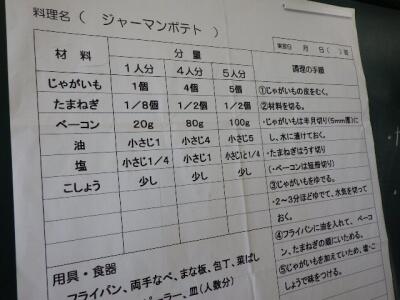 料理名（ ジャーマンポテト ）
実習日　月　日（　）
材料　分量　調理の手順
１人分　４人分　５人分
じゃがいも　1個　4個　5個　①じゃがいもの皮をむく。
たまねぎ　1／8個　1／2個　1／2個　②材料を切る。
ベーコン　20g　80g　100g　・じゃがいもは半月切り（5mm厚）に
油　小さじ1　小さじ4　小さじ5　し、水に漬けておく。
塩　小さじ1／4　小さじ1　小さじと1／4　・たまねぎはうす切り
こしょう　少し　少し　少し　（・ベーコンは短冊切り）
③じゃがいもをゆでる。
・2～3分ほどゆでて、水気を切って
おく。
④フライパンに油を入れて、ベーコ
ン、たまねぎの順にいためる。
⑤じゃがいもを加えていため、塩・こ
しょうで味をつける。
用具・食器
フライパン、両手なべ、まな板、包丁、菜ばし
ピーラー、皿（人数分）